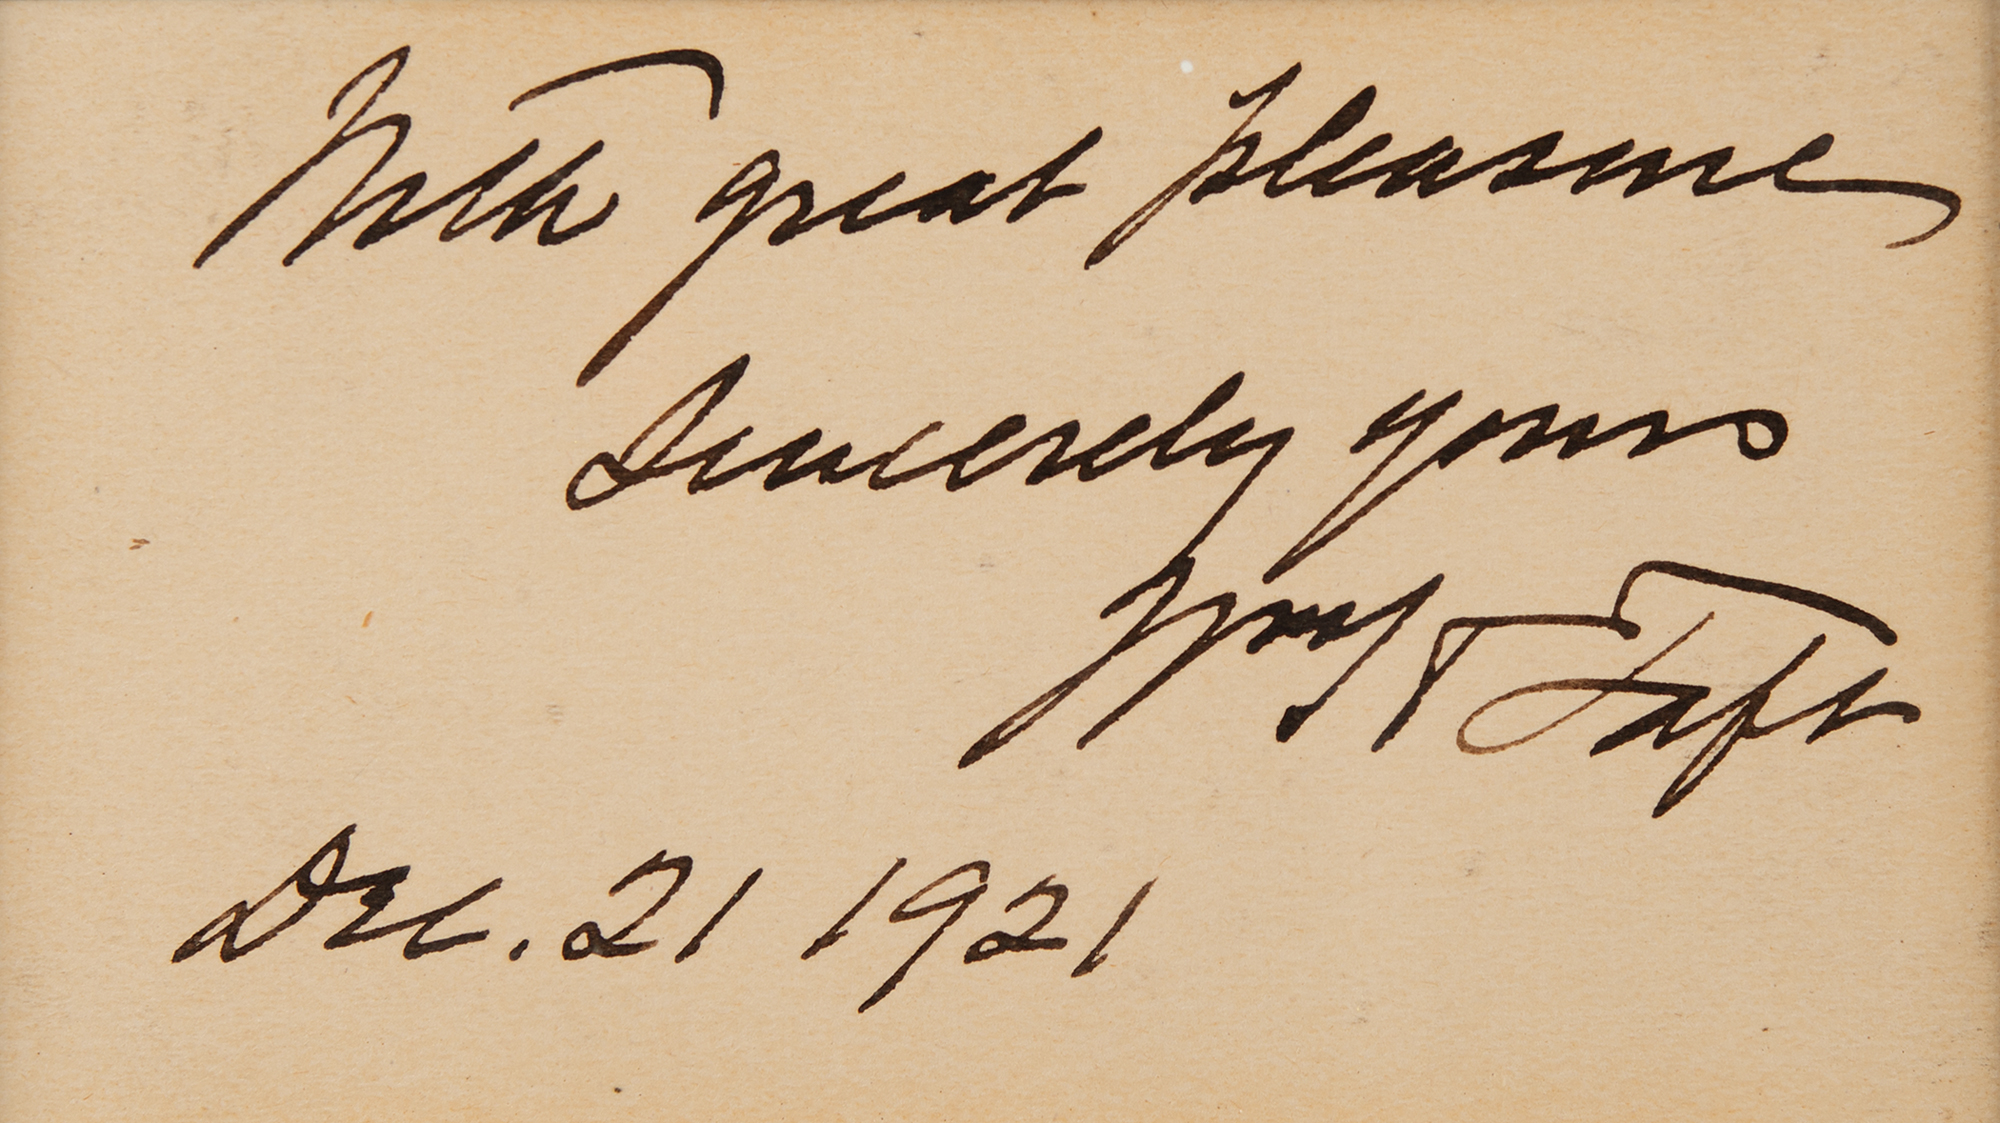 With great pleasure
Sincerely yours
Wm H Taft
Dec. 21 1921